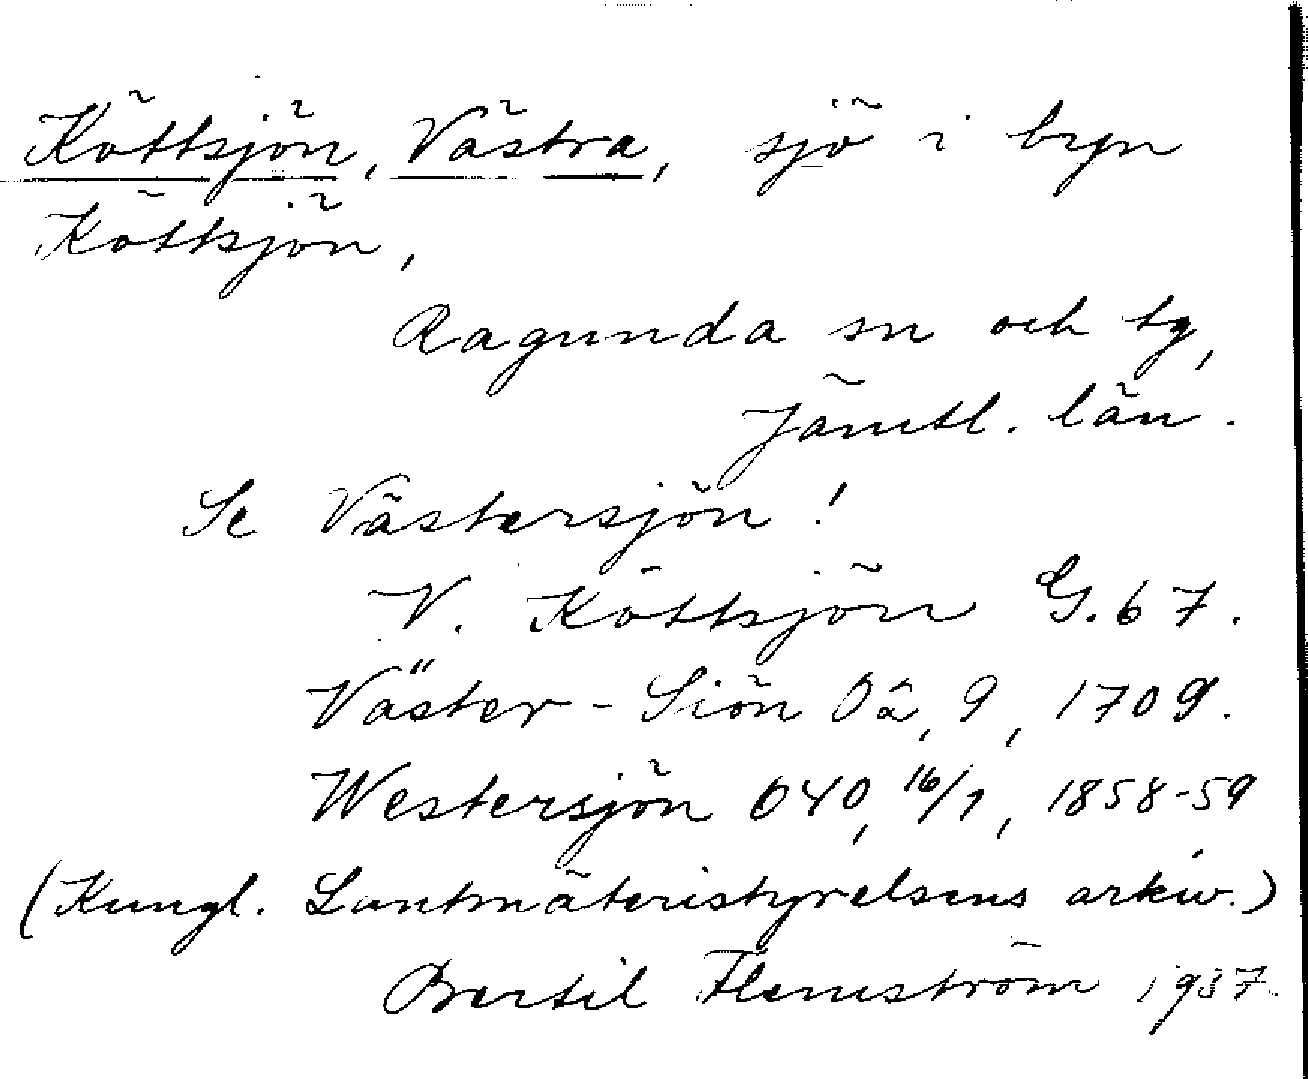 Köttsjön, Västra, sjö i byn
Köttsjön,
Ragunda sn och tg,
Jämtl. län.
Se Västersjön!
V. Köttsjön G.67.
Väster-Siön Oä, 9, 1709.
Westersjön 040, 16/1, 1858-59
(Kungl. Lantmäteristyrelsens arkiv.)
Bertil Flemström 1937.